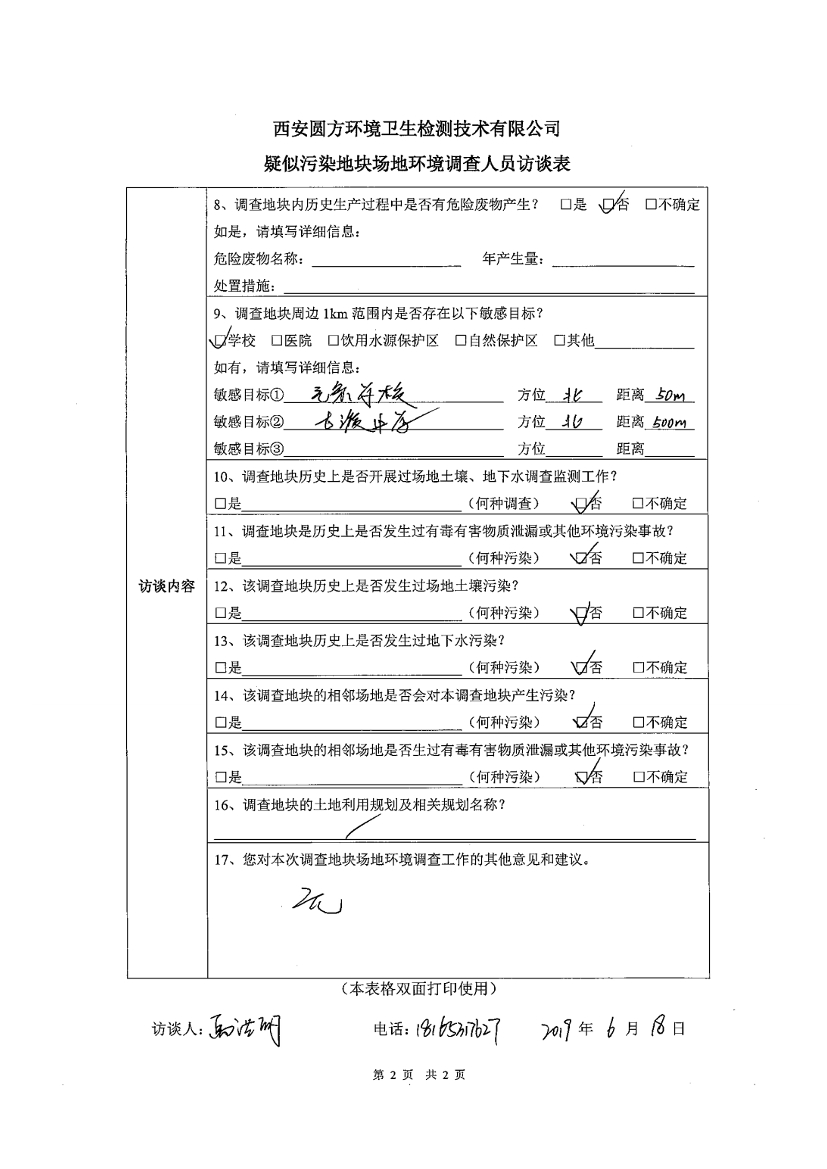 西安圆方环境卫生检测技术有限公司
疑似污染地块场地环境调查人员访谈表
访谈内容
8、调查地块内历史生产过程中是否有危险废物产生? □是 ☑否 □不确定
如是，请填写详细信息：
危险废物名称：________ 年产生量：________
处置措施：________
9、调查地块周边 1km 范围内是否存在以下敏感目标?
☑学校 □医院 □饮用水源保护区 □自然保护区 □其他________
如有，请填写详细信息：
敏感目标① 学校 方位 北 距离 50m
敏感目标② 古渡中学 方位 北 距离 500m
敏感目标③________ 方位____ 距离____
10、调查地块历史上是否开展过场地土壤、地下水调查监测工作?
□是________（何种调查） ☑否 □不确定
11、调查地块是历史上是否发生过有毒有害物质泄漏或其他环境污染事故?
□是________（何种污染） ☑否 □不确定
12、该调查地块历史上是否发生过场地土壤污染?
□是________（何种污染） ☑否 □不确定
13、该调查地块历史上是否发生过地下水污染?
□是________（何种污染） ☑否 □不确定
14、该调查地块的相邻场地是否会对本调查地块产生污染?
□是________（何种污染） ☑否 □不确定
15、该调查地块的相邻场地是否生过有毒有害物质泄漏或其他环境污染事故?
□是________（何种污染） ☑否 □不确定
16、调查地块的土地利用规划及相关规划名称?
/
17、您对本次调查地块场地环境调查工作的其他意见和建议。
无
（本表格双面打印使用）
访谈人： 电话： 2019 年 6 月 18 日
第 2 页 共 2 页